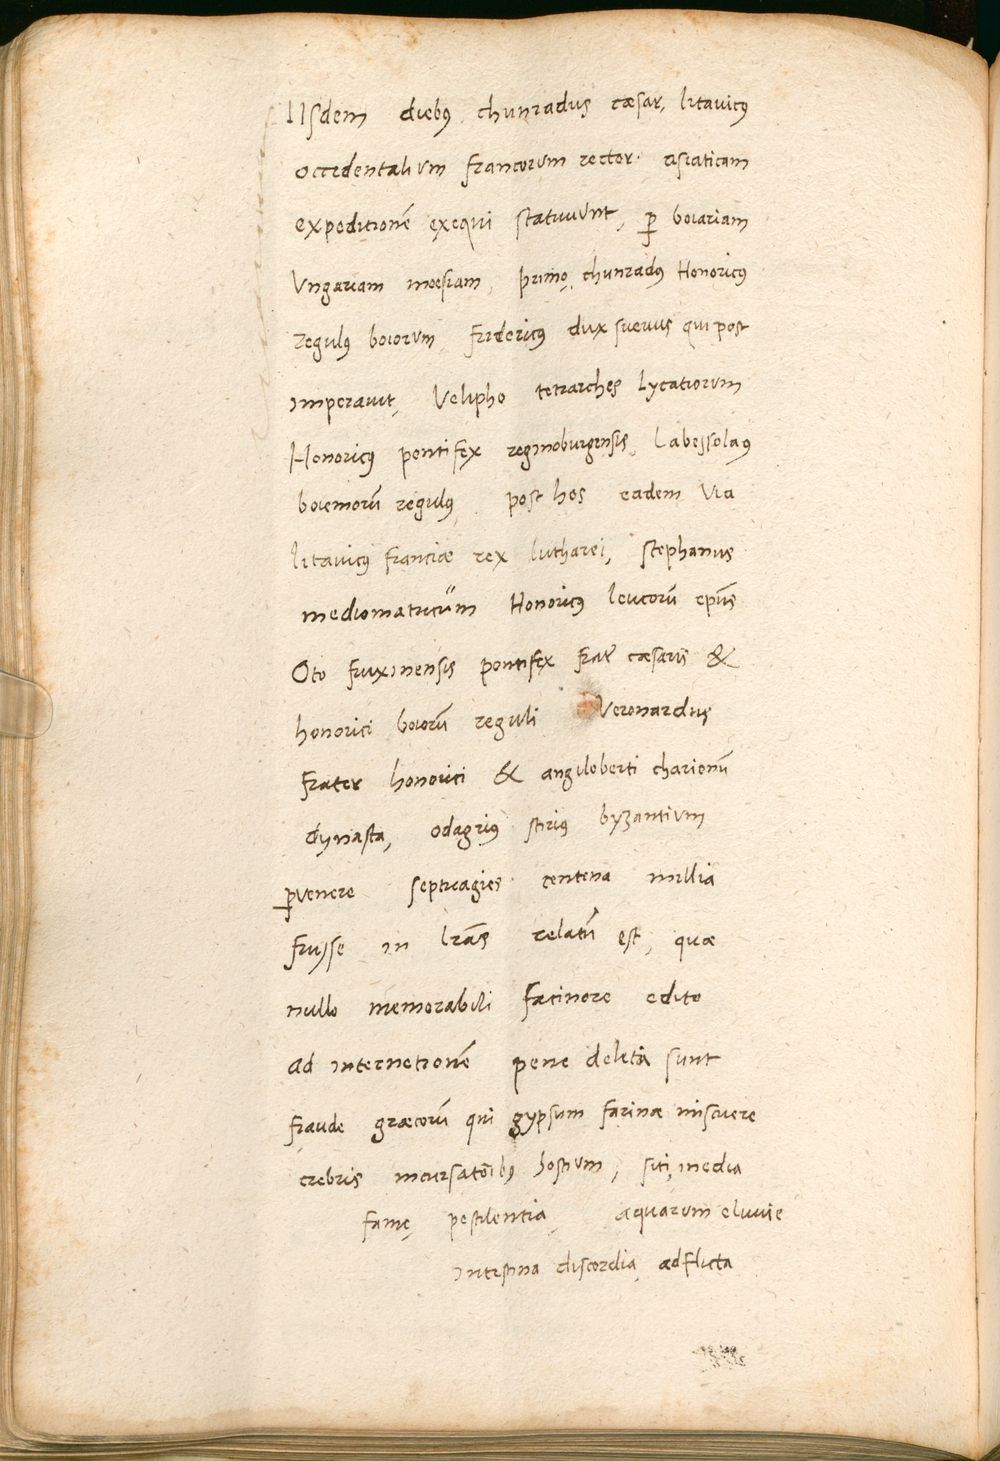 IIsdem diebꝰ chunradus cæsar, litauicꝰ
occidentalium francorum rector asiaticam
expeditionē exequi statuunt, ꝑ boiariam
Vngariam moesiam, primo chunradꝰ Honoricꝰ
regulꝰ boiorum fridericꝰ dux sueuus qui post
imperauit, Velipho tetrarches lycatiorum
Honoricꝰ pontifex reginoburgensis, Labessolaꝰ
boiemorū regulꝰ, post hos eadem Via
litauicꝰ franciæ rex lutharei, stephanus
mediomatricum Honoricꝰ leucorū epūs
Oto fruxinensis pontifex frať cæsaris &
honorici boiorū reguli Veronardus
frater honorici & angiloberti charionū
dynasta, odagriꝰ stiriꝰ byzantium
ꝑuenere septuagies centena millia
fuisse in lrās relatū est, quæ
nullo memorabili facinore edito
ad internetionē pene deleta sunt
fraude græcorū qui gypsum farinæ miscuere
crebris incursatōibꝰ hostium, siti, inedia
fame pestilentia, aquarum eluuie
intestina discordia adflicta